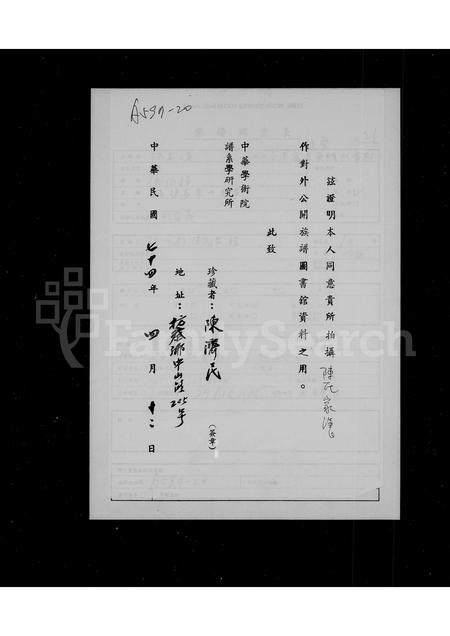 A597-20
茲證明本人同意貴所拍攝陳氏家譜
作對外公開族譜圖書館資料之用。
此致
中華學術院
譜系學研究所
珍藏者：陳濟民（簽章）
地址：枋寮鄉中山路205號
中華民國七十四年四月十二日
FamilySearch